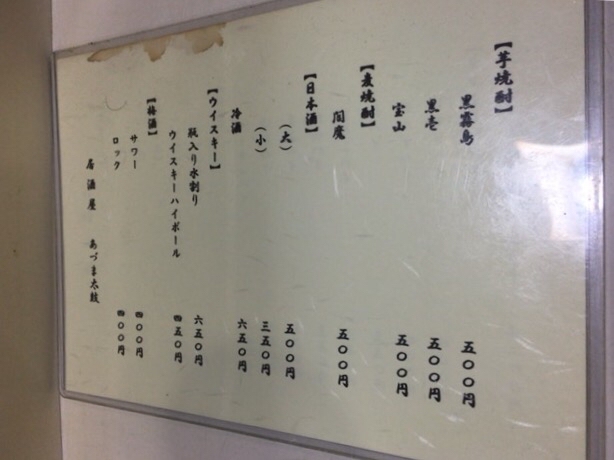 【芋焼酎】
黒霧島 五〇〇円
黒壱 五〇〇円
宝山 五〇〇円
【麦焼酎】
閻魔 五〇〇円
【日本酒】
（大） 五〇〇円
（小） 三五〇円
冷酒 六五〇円
【ウイスキー】
瓶入り水割り 六五〇円
ウイスキーハイボール 四五〇円
【梅酒】
サワー 四〇〇円
ロック 四〇〇円
居酒屋 あづま太鼓